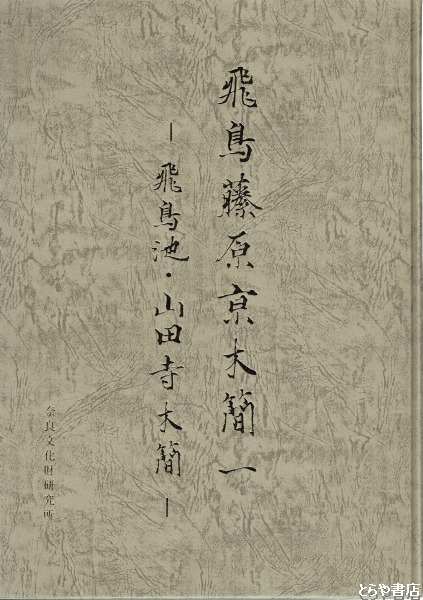 飛鳥藤原京木簡一
―飛鳥池・山田寺木簡―
奈良文化財研究所
とらや書店